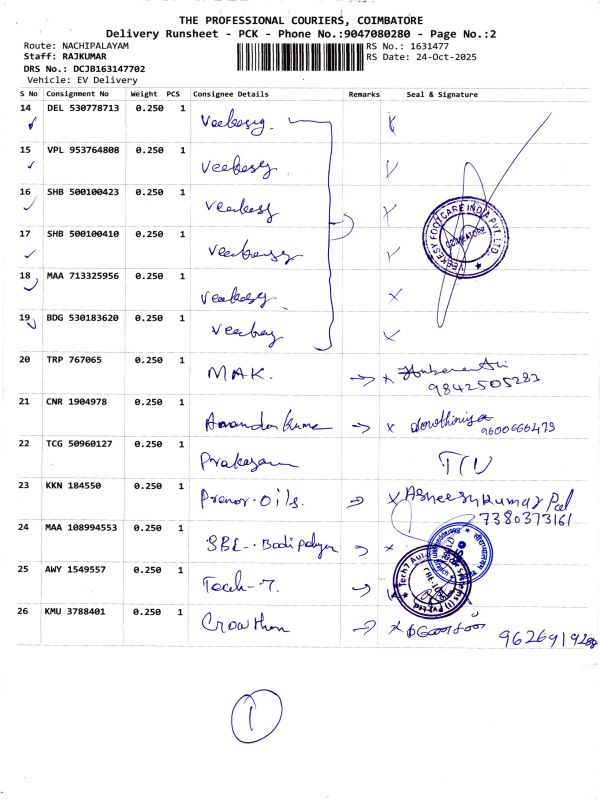 THE PROFESSIONAL COURIERS, COIMBATORE
Delivery Runsheet - PCK - Phone No.:9047080280 - Page No.:2
Route: NACHIPALAYAM
RS No.: 1631477
Staff: RAJKUMAR
RS Date: 24-Oct-2025
DRS No.: DCJB163147702
Vehicle: EV Delivery
S No Consignment No Weight PCS Consignee Details Remarks Seal & Signature
14 DEL 530778713 0.250 1 Veekesy
15 VPL 953764808 0.250 1 Veekesy
16 SHB 500100423 0.250 1 Veekesy
17 SHB 500100410 0.250 1 Veekesy
VEEKESY FOOTCARE INDIA PVT. LTD.
COIMBATORE
18 MAA 713325956 0.250 1 Veekesy
19 BDG 530183620 0.250 1 Veekesy
20 TRP 767065 0.250 1 MAK.
9842505283
21 CNR 1904978 0.250 1 Anandakumar
9600666479
22 TCG 50960127 0.250 1 Prakasam
23 KKN 184550 0.250 1 Oils. Asheesh Kumar Pal
7380373161
24 MAA 108994553 0.250 1 SBI
25 AWY 1549557 0.250 1 Tech-7.
26 KMU 3788401 0.250 1 9626919288
1